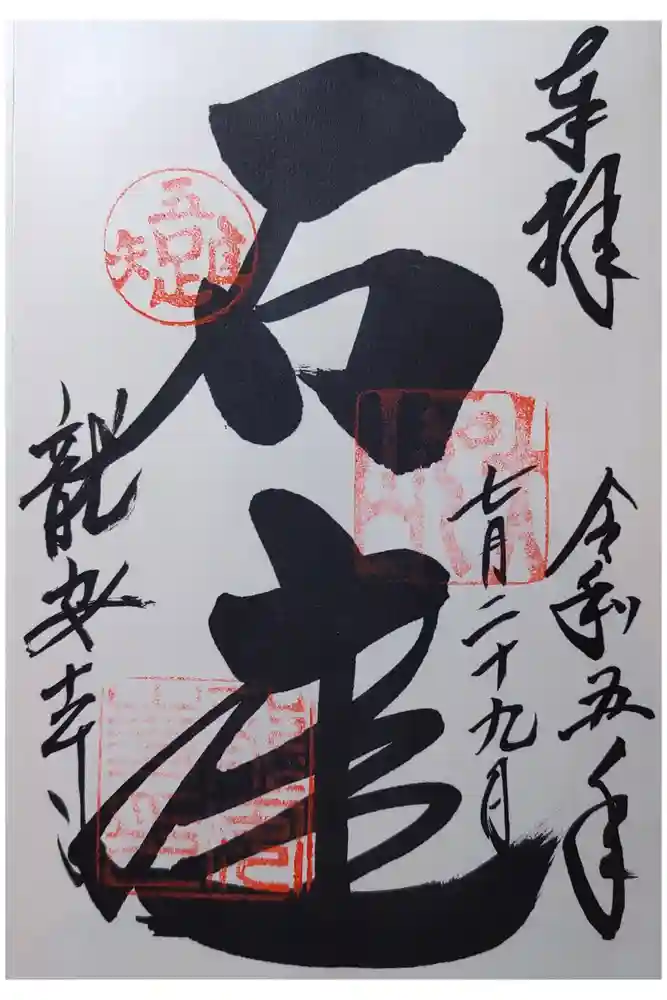 奉拝
令和五年
七月二十九日
石庭
吾唯足知
龍安寺